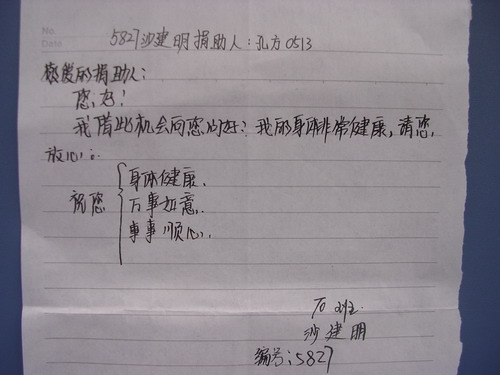 No.
Date
5827沙建明捐助人:孔方0513
敬爱的捐助人:
您好!
我借此机会向您问好?我的身体非常健康,请您,
放心。
祝您
身体健康.
万事如意.
事事顺心.
70班.
沙建明
编号:5827